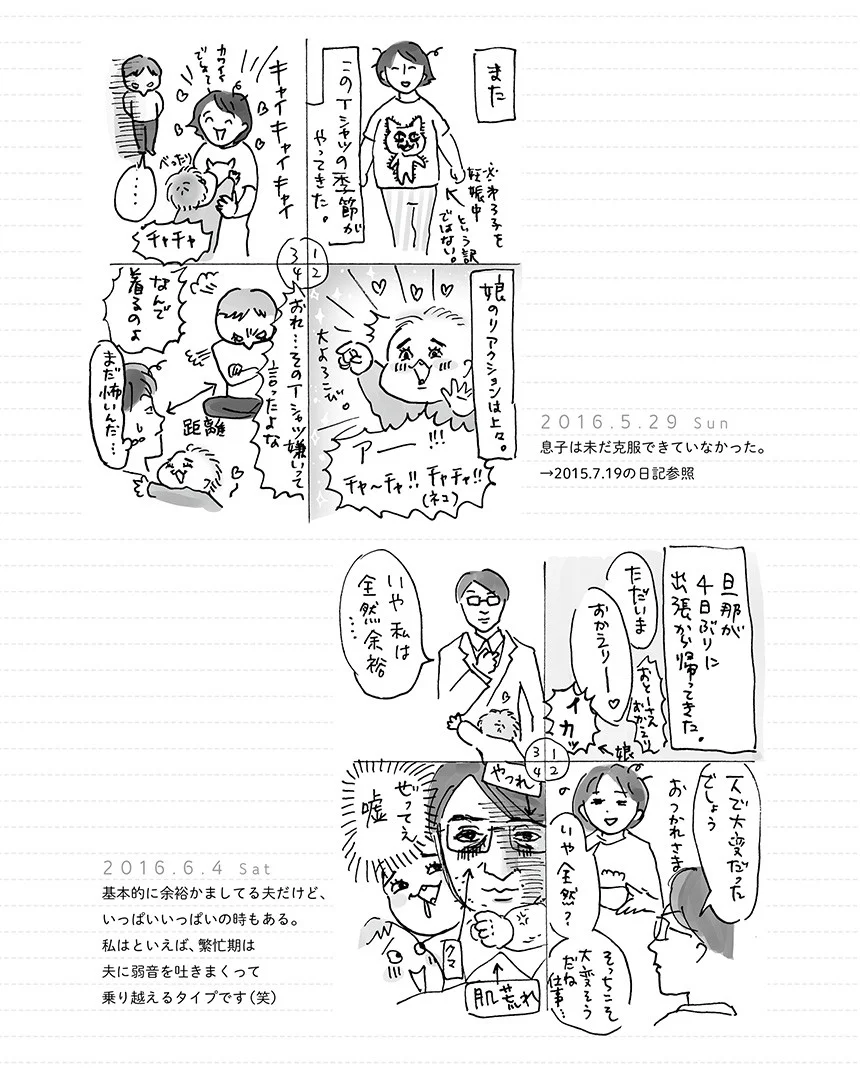 また
このTシャツの季節が
やってきた。
※第3子を
妊娠中
という訳
ではない。
娘のリアクションは上々。
大よろこび♡
アー!!!
チャ〜チャ!! チャチャ!!
(ネコ)
キャイキャイキャイ
カワイイ
でしょー
べったり
・・・
チャチャ
おれ…そのTシャツ嫌いって
言ったよな
なんで
着るのよ
まだ怖いんだ…
距離
1
2
3
4
2016.5.29 Sun
息子は未だ克服できていなかった。
→2015.7.19の日記参照
旦那が
4日ぶりに
出張から帰ってきた。
ただいま
おかえりー♡
おとーさん
おかえり
イカッ
←娘
一人で大変だった
でしょう
おつかれさま。
いや全然?
そっちこそ
大変そう
だね
仕事…
いや私は
全然余裕
・・・
やつれ
ぜってえ
嘘
クマ
肌荒れ
1
2
3
4
2016.6.4 Sat
基本的に余裕かましてる夫だけど、
いっぱいいっぱいの時もある。
私はといえば、繁忙期は
夫に弱音を吐きまくって
乗り越えるタイプです(笑)